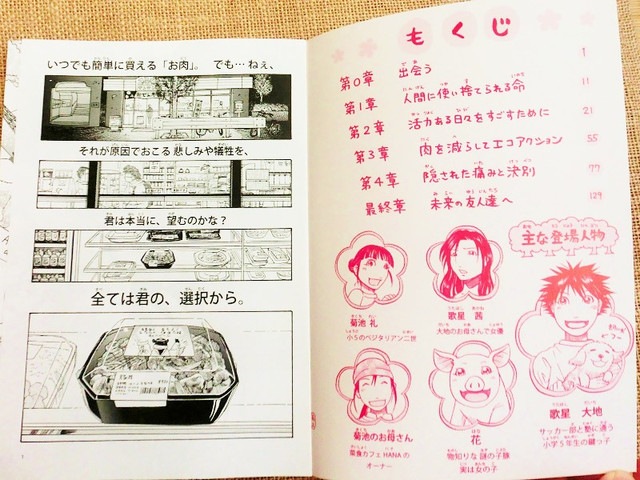 いつでも簡単に買える「お肉」。 でも…ねぇ、
それが原因でおこる 悲しみや犠牲を、
君は本当に、望むのかな?
全ては君の、選択から。
もくじ
第0章 出会う 1
第1章 人間に使い捨てられる命 11
第2章 活力ある日々をすごすために 21
第3章 肉を減らしてエコアクション 55
第4章 隠された痛みと決別 77
最終章 未来の友人達へ 129
主な登場人物
菊池 礼
小5のベジタリアン二世
歌星 茜
大地のお母さんで女優
歌星 大地
サッカー部と塾に通う
小学5年生の鍵っ子
菊池のお母さん
菜食カフェHANAの
オーナー
花
物知りな 謎の子豚
実は女の子